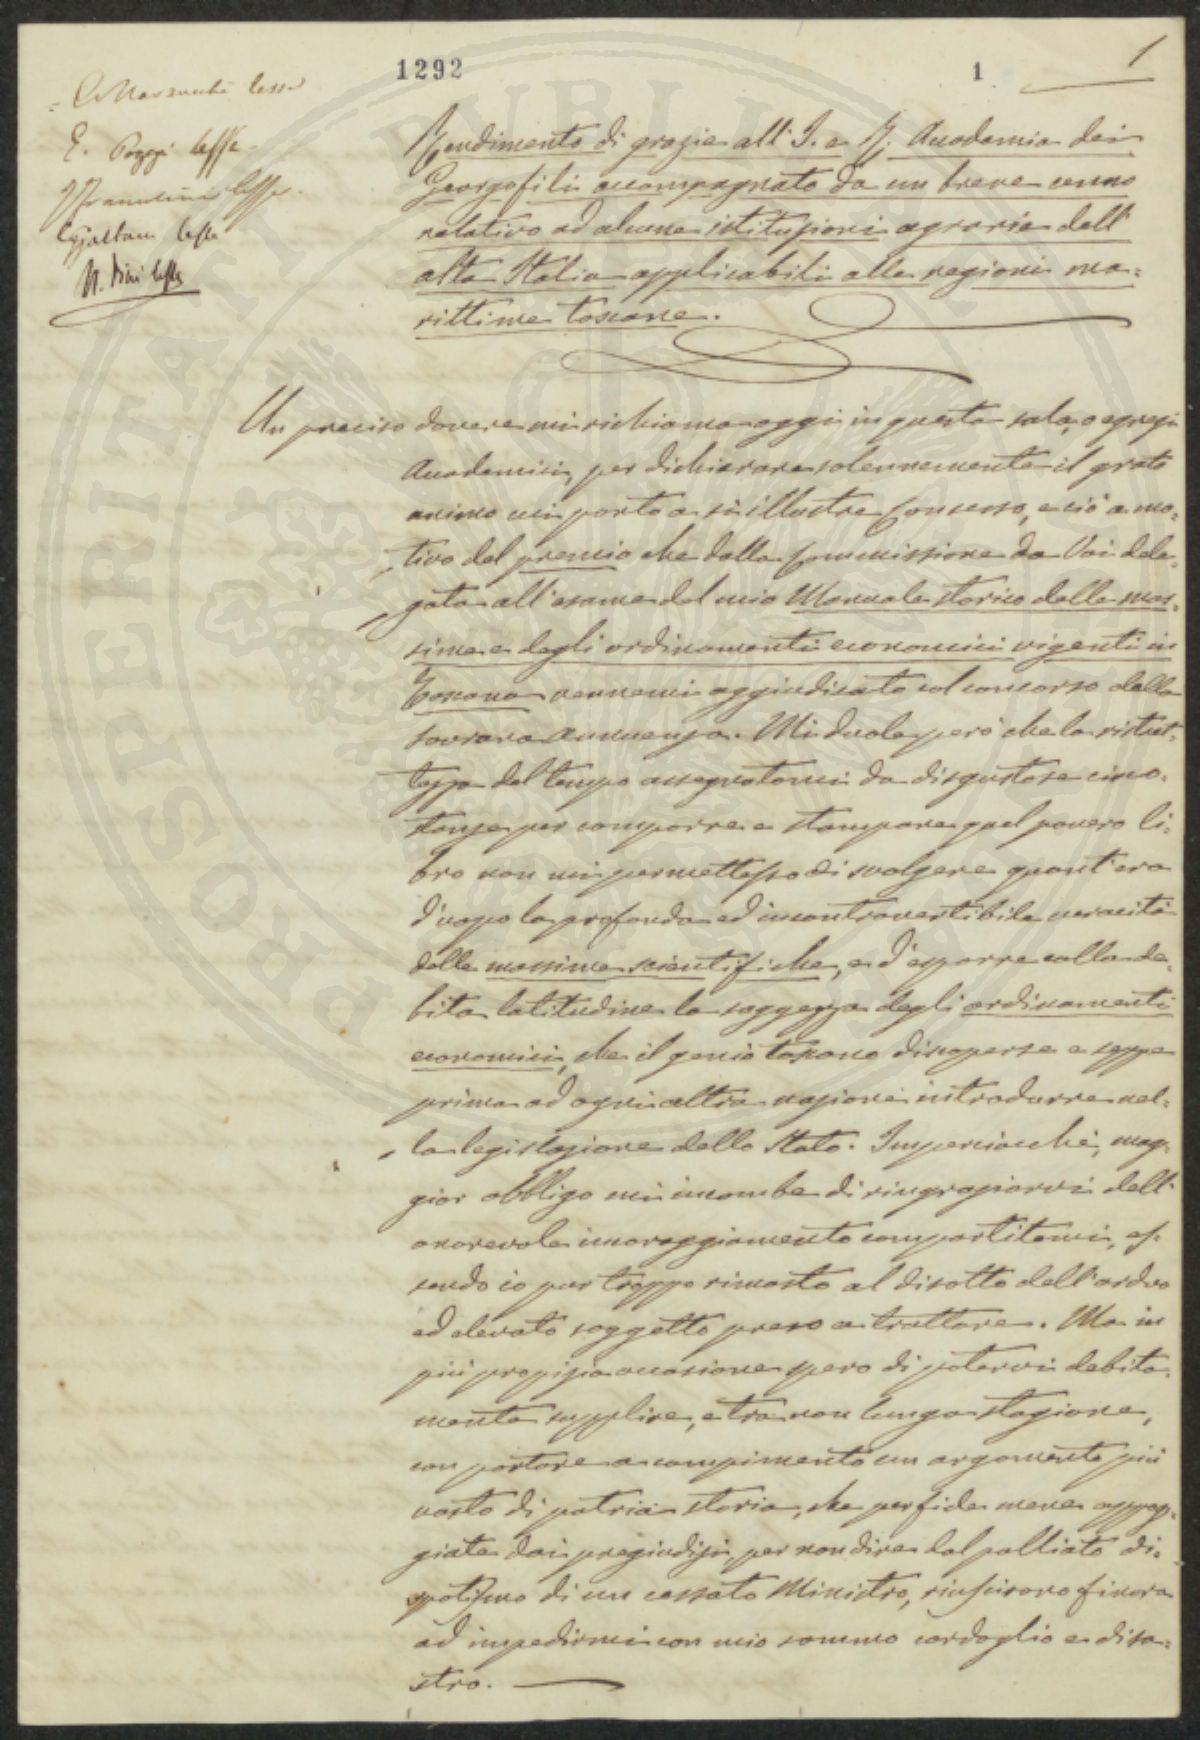 1292
1
1
C. Marzucchi lesse
E. Poggi lesse
lesse
lesse
lesse
Rendimento di grazie all' I. e R. Accademia dei
Georgofili accompagnato da un breve cenno
relativo ad alcune istituzioni agrarie dell'
alta Italia applicabili alle regioni ma-
rittime toscane.
Un preciso dovere mi richiama oggi in questa sala, o egregi
Accademici, per dichiarare solennemente il grato
animo ch'io porto a sì illustre Consesso, e ciò a mo-
tivo del premio che dalla Commissione da Voi dele-
gata all'esame del mio Manuale storico delle mas-
sime e degli ordinamenti economici vigenti in
Toscana vennemi aggiudicato col concorso della
sovrana annuenza. Mi duole però che la ristret-
tezza del tempo assegnatomi da disgustose circo-
stanze per comporre e stampare quel povero li-
bro non mi permettesse di svolgere quant'era
d'uopo la profonda ed incontrovertibile veracità
delle massime scientifiche, e d'esporre colla de-
bita latitudine la saggezza degli ordinamenti
economici, che il genio toscano discoperse e seppe
prima ad ogni altra nazione introdurre nel-
la legislazione dello Stato. Imperciocchè, mag-
gior obbligo mi incombe di ringraziarvi dell'
onorevole incoraggiamento compartitomi, es-
sendo io pur troppo rimasto al disotto dell'arduo
ed elevato soggetto preso a trattare. Ma in
più propizia occasione spero di potervi debita-
mente supplire, e tra non lunga stagione,
con portare a compimento un argomento più
vasto di patria storia, che perfide mene appog-
giate dai pregiudizj, per non dire dal palliato di-
spotismo di un cessato Ministro, riuscirono finora
ad impedirmi con mio sommo cordoglio e disa-
stro.
PROSPERITATI PVBLICAE